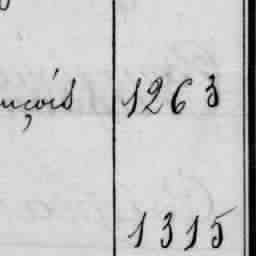 nçois 1263
1315